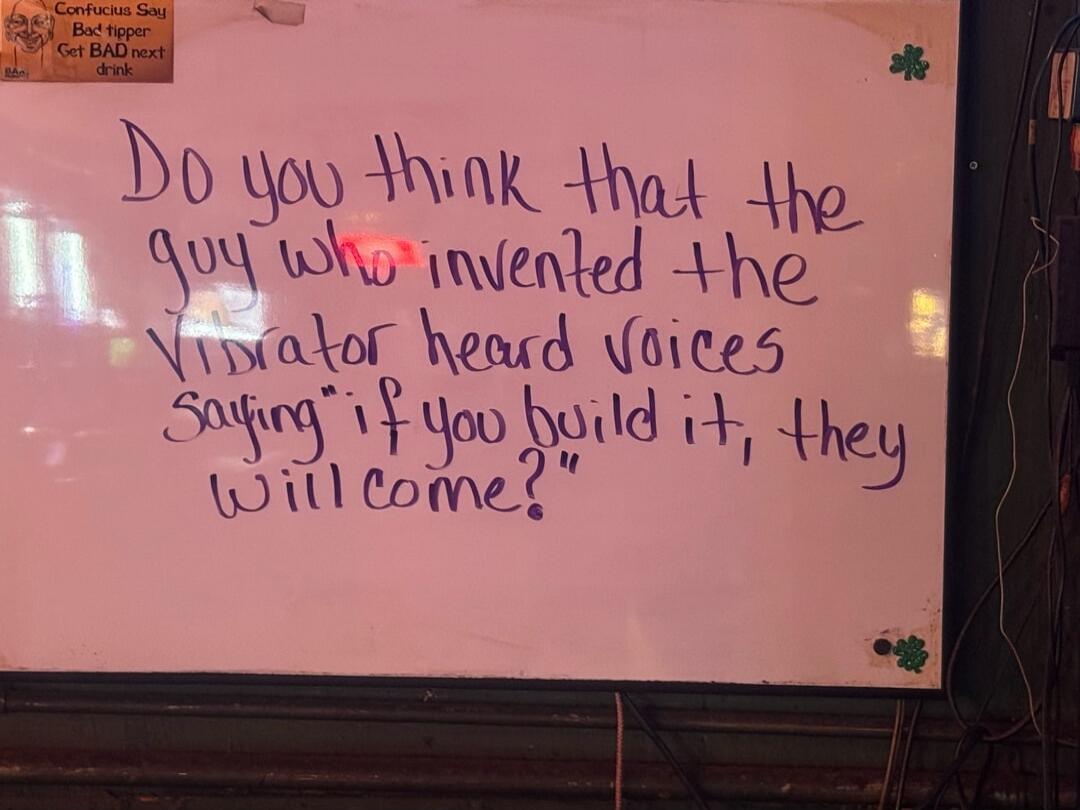 Confucius Say
Bad tipper
Get BAD next
drink
Do you think that the
guy who invented the
Vibrator heard voices
saying "if you build it, they
will come?"